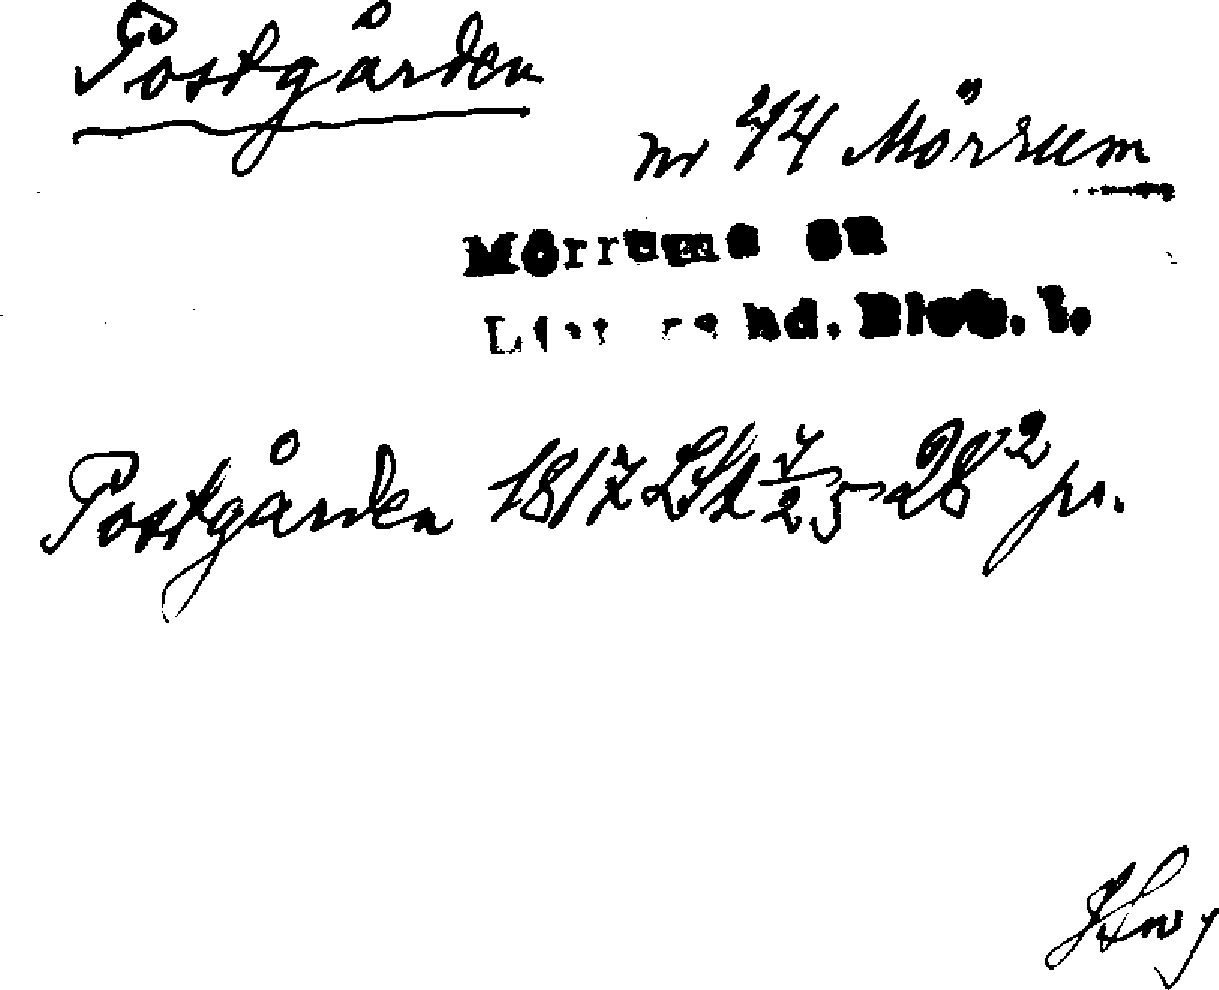 Postgården
nr 44 Mörrum
Mörrums sn
Listers hd. Blek. l.
Postgården 1817 LSA 7/25-28² pr.